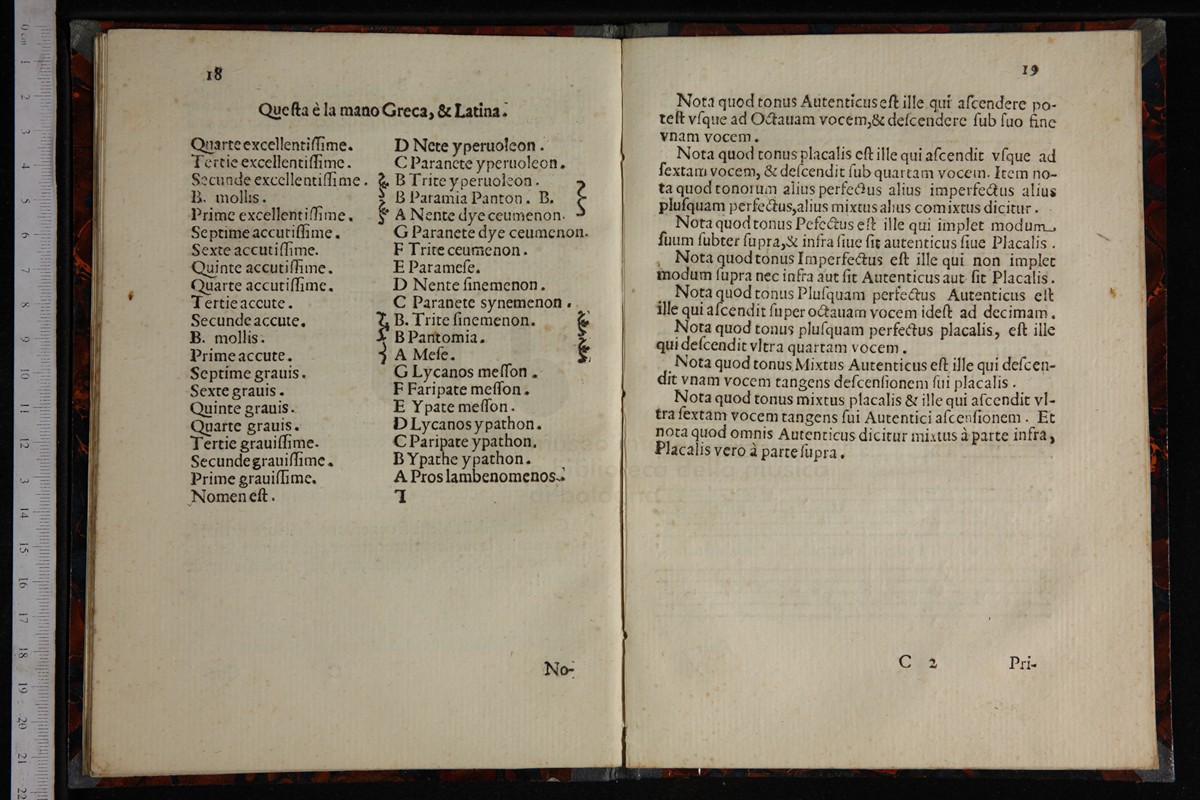 18
Questa è la mano Greca, & Latina.
Quarte excellentissime. D Nete yperuoleon.
Tertie excellentissime. C Paranete yperuoleon.
Secunde excellentissime. B Trite yperuoleon.
B. mollis. B Paramia Panton. B.
Prime excellentissime. A Nente dye ceumenon.
Septime accutissime. G Paranete dye ceumenon.
Sexte accutissime. F Trite ceumenon.
Quinte accutissime. E Paramese.
Quarte accutissime. D Nente sinemenon.
Tertie accute. C Paranete synemenon.
Secunde accute. B. Trite sinemenon.
B. mollis. B Pantomia.
Prime accute. A Mese.
Septime grauis. G Lycanos messon.
Sexte grauis. F Faripate messon.
Quinte grauis. E Ypate messon.
Quarte grauis. D Lycanos ypathon.
Tertie grauissime. C Paripate ypathon.
Secunde grauissime. B Ypathe ypathon.
Prime grauissime. A Proslambenomenos.
Nomen est.
No-
19
Nota quod tonus Autenticus est ille qui ascendere po-
test vsque ad Octauam vocem, & descendere sub suo fine
vnam vocem.
Nota quod tonus placalis est ille qui ascendit vsque ad
sextam vocem, & descendit sub quartam vocem. Item no-
ta quod tonorum alius perfectus alius imperfectus alius
plusquam perfectus, alius mixtus alius comixtus dicitur.
Nota quod tonus Pefectus est ille qui implet modum
suum subter supra, & infra siue sit autenticus siue Placalis.
Nota quod tonus Imperfectus est ille qui non implet
modum supra nec infra aut sit Autenticus aut sit Placalis.
Nota quod tonus Plusquam perfectus Autenticus est
ille qui ascendit super octauam vocem idest ad decimam.
Nota quod tonus plusquam perfectus placalis, est ille
qui descendit vltra quartam vocem.
Nota quod tonus Mixtus Autenticus est ille qui descen-
dit vnam vocem tangens descensionem sui placalis.
Nota quod tonus mixtus placalis & ille qui ascendit vl-
tra sextam vocem tangens sui Autentici ascensionem. Et
nota quod omnis Autenticus dicitur mixtus à parte infra,
Placalis vero à parte supra.
C 2 Pri-